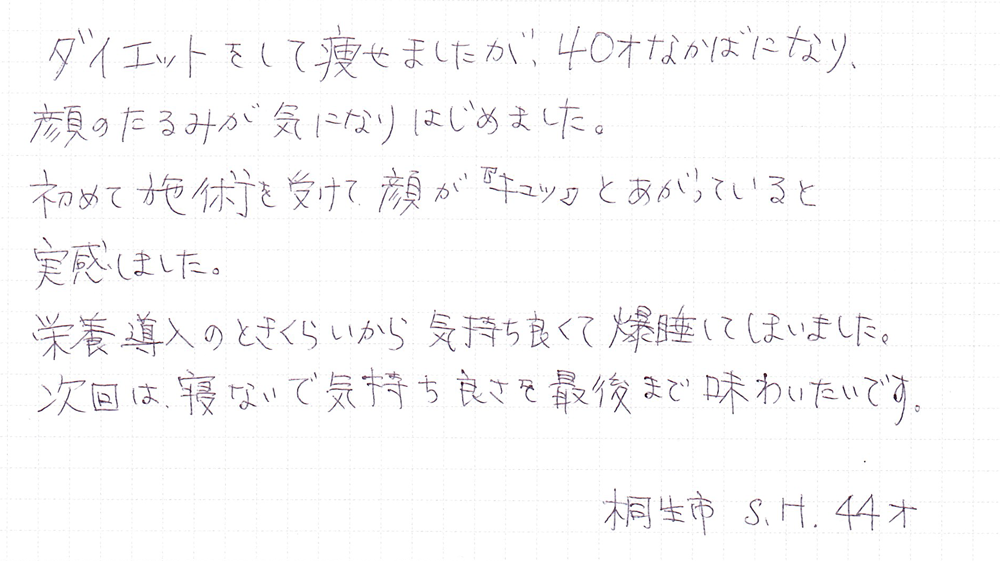 ダイエットをして痩せましたが、40才なかばになり、
顔のたるみが気になりはじめました。
初めて施術を受けて、顔が『キュッ』とあがっていると
実感しました。
栄養導入のときくらいから気持ち良くて爆睡してしまいました。
次回は、寝ないで気持ち良さを最後まで味わいたいです。
桐生市 S.H. 44才